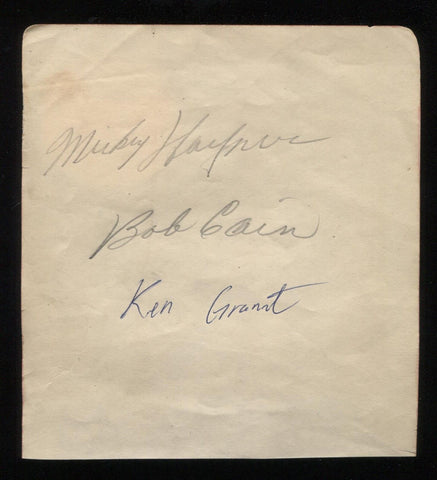 Mickey Haefner
Bob Cain
Ken Grant